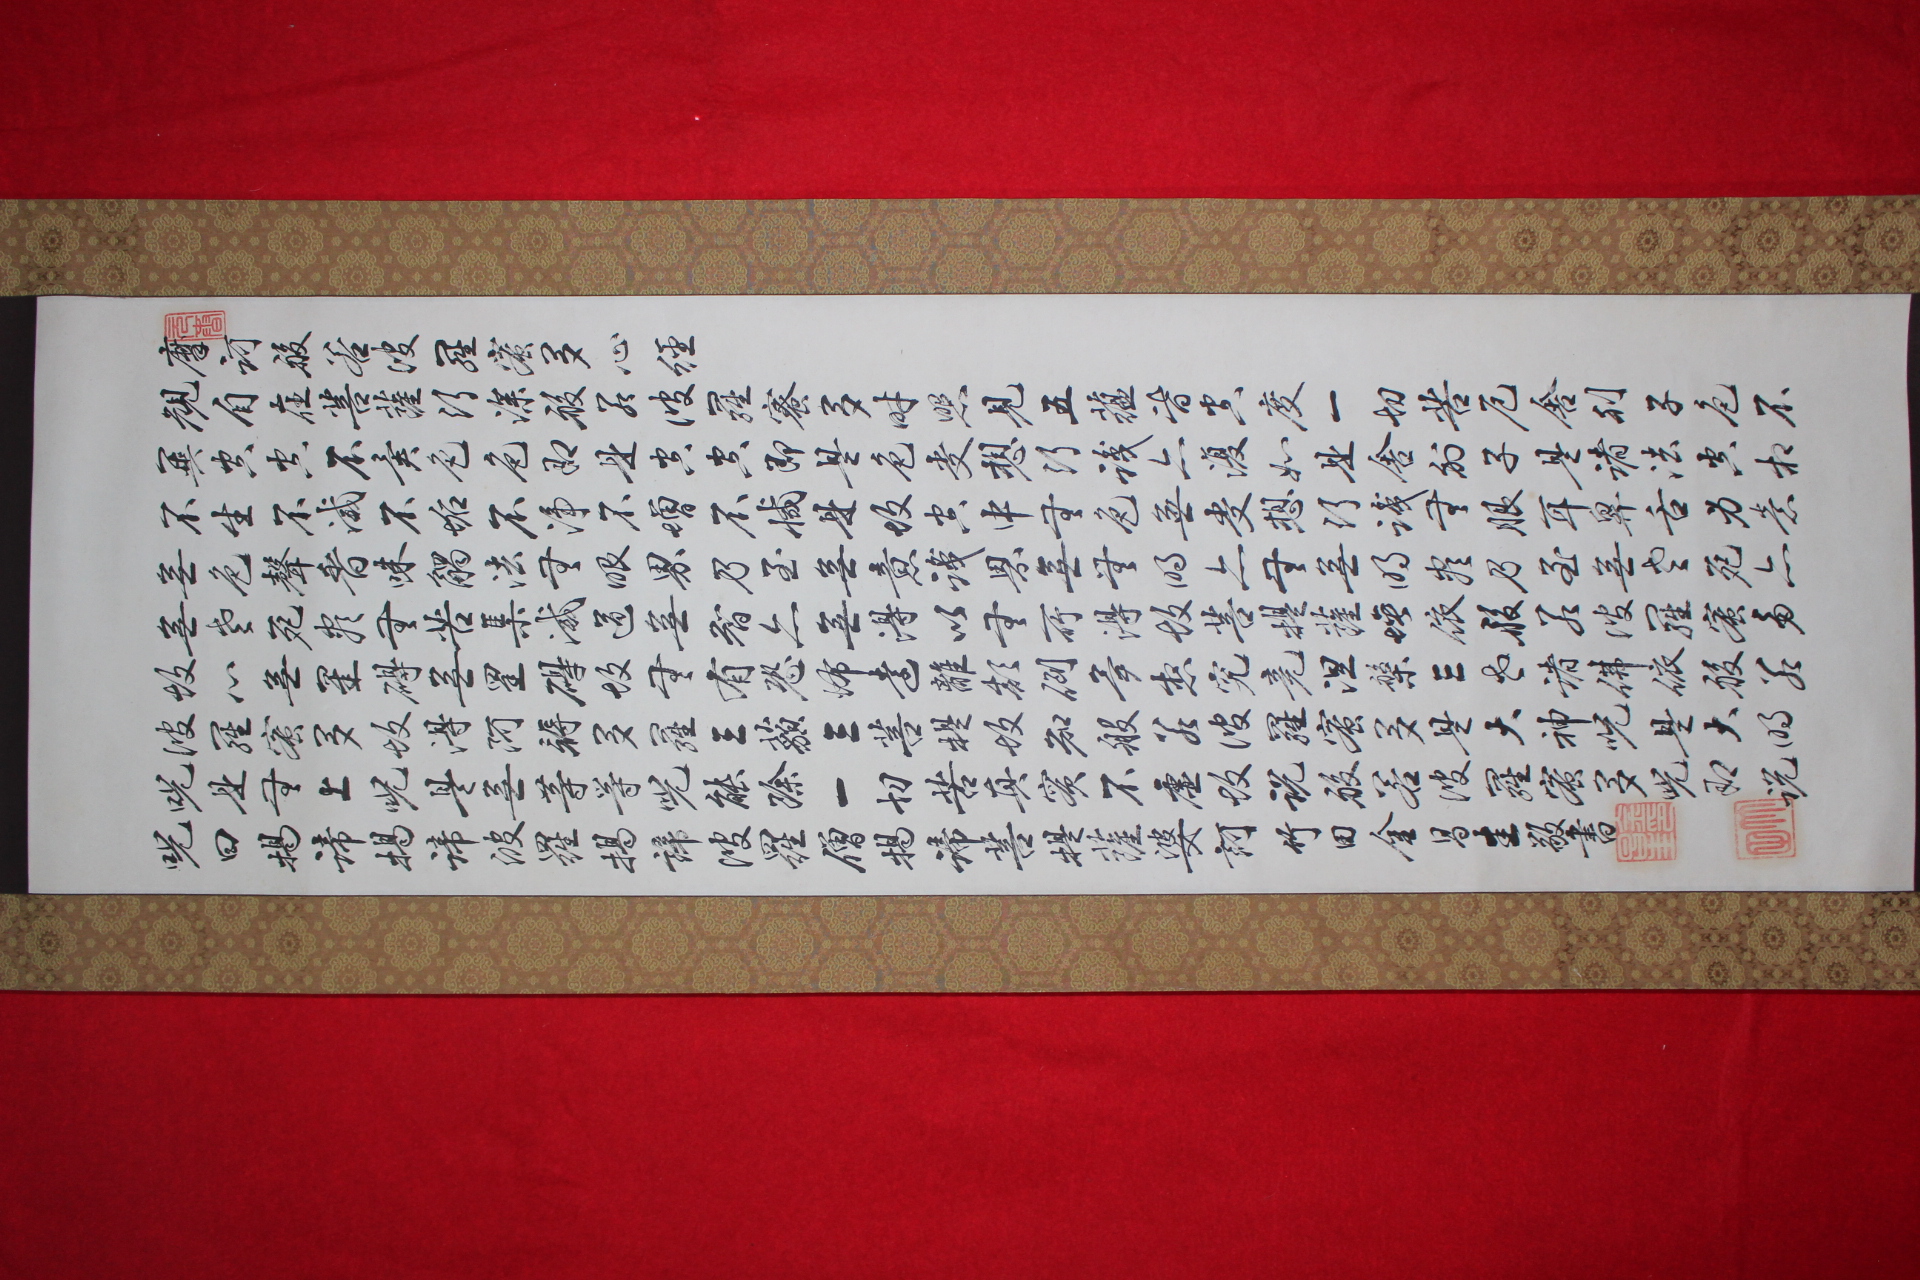 摩訶般若波羅蜜多心經
觀自在菩薩行深般若波羅蜜多時照見五蘊皆空度一切苦厄舍利子色不
異空空不異色色即是空空即是色受想行識亦復如是舍利子是諸法空相
不生不滅不垢不淨不增不減是故空中無色無受想行識無眼耳鼻舌身意
無色聲香味觸法無眼界乃至無意識界無無明亦無無明盡乃至無老死亦
無老死盡無苦集滅道無智亦無得以無所得故菩提薩埵依般若波羅蜜多
故心無罣礙無罣礙故無有恐怖遠離顛倒夢想究竟涅槃三世諸佛依般若
波羅蜜多故得阿耨多羅三藐三菩提故知般若波羅蜜多是大神呪是大明
呪是無上呪是無等等呪能除一切苦真實不虛故說般若波羅蜜多呪即說
呪曰揭諦揭諦波羅揭諦波羅僧揭諦菩提薩婆訶 竹田金昌圭敬書
金昌圭印
竹田